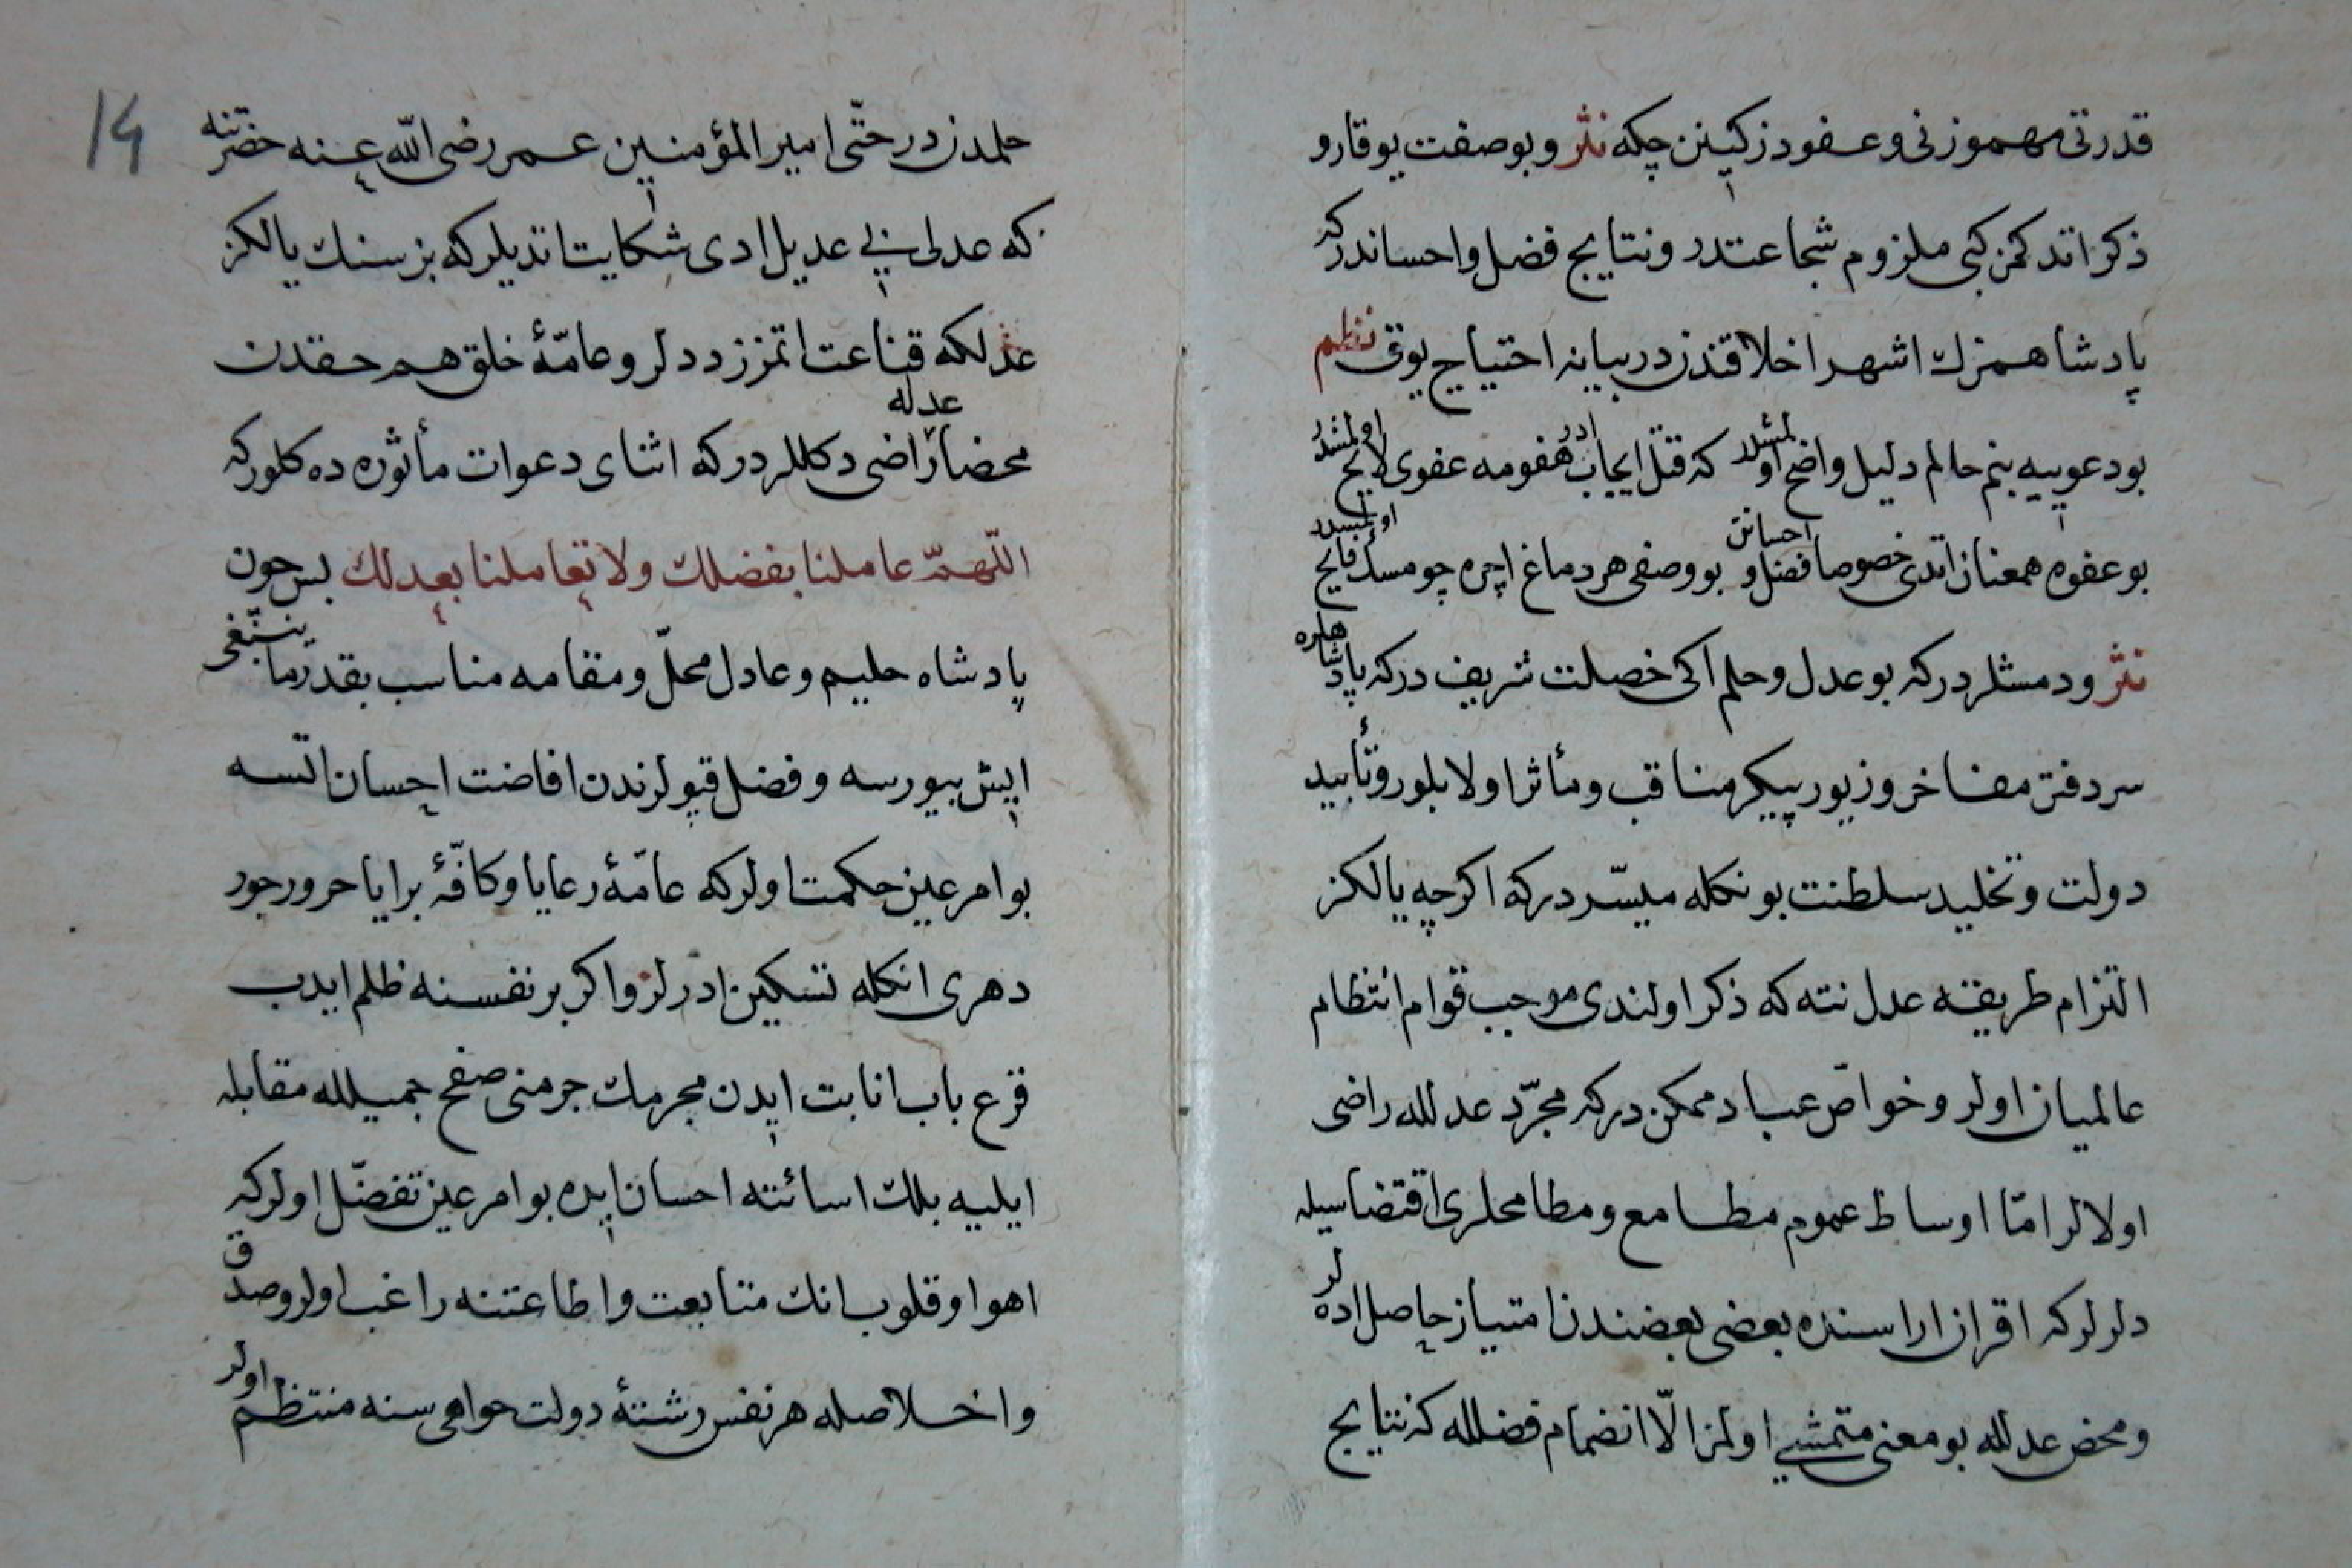 قدرتی مهموزنی و عفو دز کبینن چکه نثر و بو صفت یوقارو
ذکر اتدکمز کبی ملزوم شجاعتدر و نتایج فضل و احساندر که
پادشاهمزك اشهر اخلاقندن در بیانه احتیاج یوق نظم
بو دعوییه بنم حالم دلیل واضح اولمشدر که قتل ایجاب ادر هفومه عفوی لایح اولمشدر
بو عفوه همعنان اتدی خصوصا فضل و احسانن بو وصفی هر دماغ اچره چو مسك فایح اولمشدر
نثر و دمشلردر که بو عدل و حلم اکی خصلت شریف در که پادشاهلره
سر دفتر مفاخر و زیور پیکر مناقب و مأثر اولابلور و تأیید
دولت و تخلید سلطنت بونکله میسّر در که اکرچه یالکز
التزام طریقه عدل نته که ذکر اولندی موجب قوام انتظام
عالمیان اولر و خواصّ عباد ممکن در که مجرّد عدلله راضی
اولالر امّا اوساط عموم مطامع و مطامحلری اقتضاسیله
دلرلر که اقران اراسنده بعضی بعضندن امتیاز حاصل ادهلر
و محض عدلله بو معنی متمشی اولمز الّا انضمام فضلله که نتایج
14
حلمدن در حتّی امیر المؤمنین عمر رضی الله عنه حضرتنه
که عدلی بی عدیل ادی شکایت اتدیلر که بز سنك یالکز
عدلکه قناعت اتمزز ددلر و عامّۀ خلق هم حقدن
محضا عدله راضی دکللردر که اثنای دعوات مأثوره ده کلور که
اللّهمّ عاملنا بفضلك ولا تعاملنا بعدلك پس چون
پادشاه حلیم و عادل محلّ و مقامه مناسب بقدر ما ینبغی
ایش بیورسه و فضل قپولرندن افاضت احسان اتسه
بو امر عین حکمت اولر که عامّۀ رعایا و کافّۀ برایا حرور جور
دهری انکله تسکین ادرلر و اکر بر نفسنه ظلم ایدب
قرع باب انابت ایدن مجرمك جرمنی صفح جمیلله مقابله
ایلیه بلك اسائتنه احسان ایده بو امر عین تفضّل اولر که
اهوا و قلوب انك متابعت و اطاعتنه راغب اولر و صدق
و اخلاصله هر نفس رشتۀ دولت خواهی سنه منتظم اولر